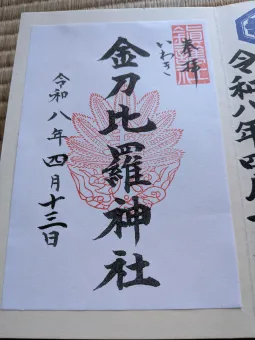 奉拝
いわき
金刀比羅神社
令和八年四月十三日
令和八年四月